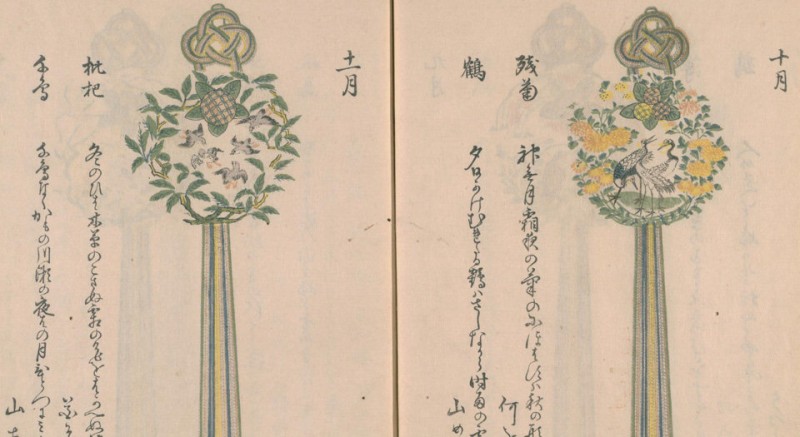 十月
残菊
神無月霜夜の菊のにほはすハ秋の形
何を
鶴
夕日かけむれたる鶴ハさしなから時雨の雲
山め
十一月
枇杷
冬のひは木草のこさぬ霜の色をはかへぬ
花そ
千鳥
千鳥なくかもの川瀬の夜はの月ひとつにミ
山あ